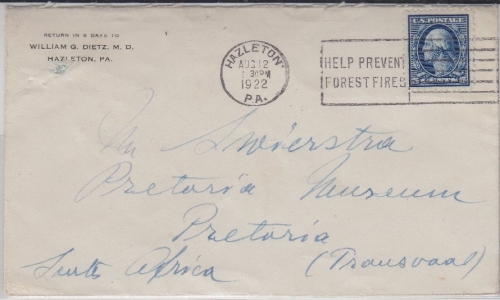 RETURN IN 5 DAYS TO
WILLIAM G. DIETZ, M. D.
HAZLETON, PA.
HAZLETON
AUG 12
30PM
1922
P.A.
HELP PREVENT
FOREST FIRES
U.S. POSTAGE
Mr Swierstra
Pretoria Museum
Pretoria
South Africa (Transvaal)